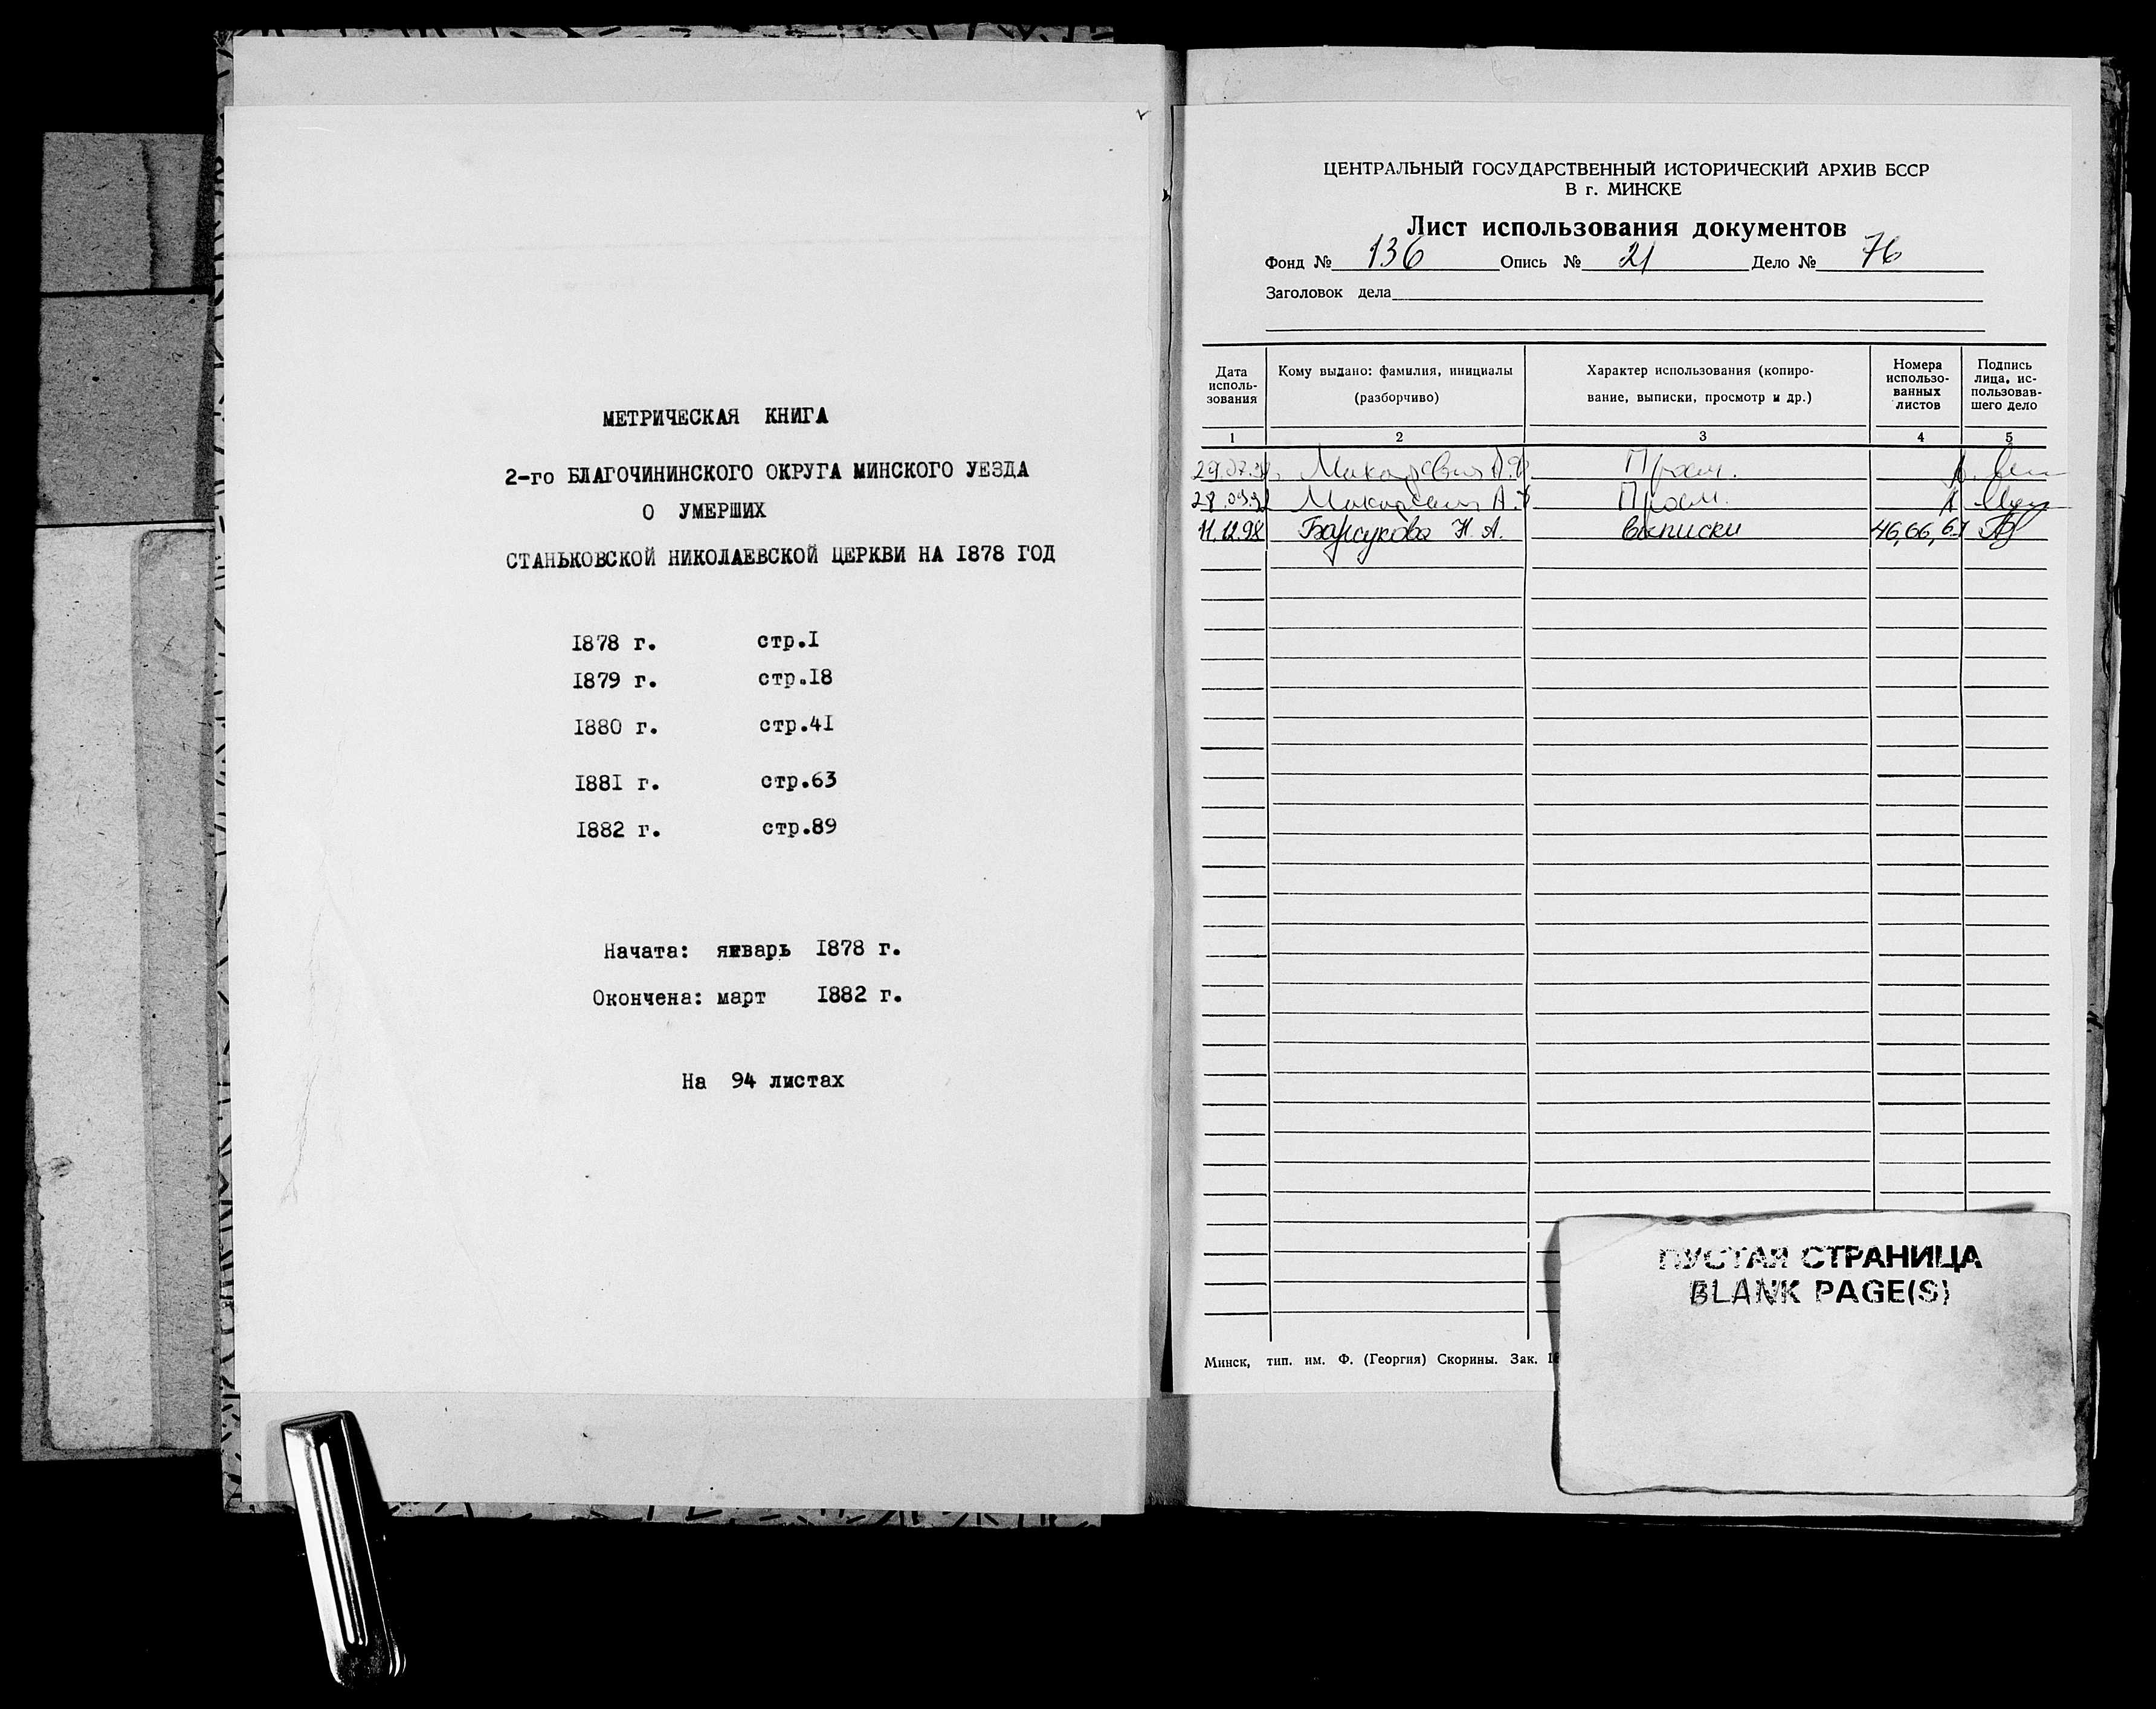 МЕТРИЧЕСКАЯ КНИГА
2-го БЛАГОЧИНИНСКОГО ОКРУГА МИНСКОГО УЕЗДА
О УМЕРШИХ
СТАНЬКОВСКОЙ НИКОЛАЕВСКОЙ ЦЕРКВИ НА 1878 ГОД
1878 г. стр.1
1879 г. стр.18
1880 г. стр.41
1881 г. стр.63
1882 г. стр.89
Начата: январь 1878 г.
Окончена: март 1882 г.
На 94 листах
ЦЕНТРАЛЬНЫЙ ГОСУДАРСТВЕННЫЙ ИСТОРИЧЕСКИЙ АРХИВ БССР
В г. МИНСКЕ
Лист использования документов
Фонд № 136 Опись № 21 Дело № 76
Заголовок дела
Дата исполь-зования
Кому выдано: фамилия, инициалы (разборчиво)
Характер использования (копиро-вание, выписки, просмотр и др.)
Номера использо-ванных листов
Подпись лица, ис-пользовав-шего дело
1 2 3 4 5
Макаревич Просм.
Макаревич А. Просм.
11.12.98 Барсукова Н. А. выписки 46,66,
Минск, тип. им. Ф. (Георгия) Скорины. Зак.
ПУСТАЯ СТРАНИЦА
BLANK PAGE(S)